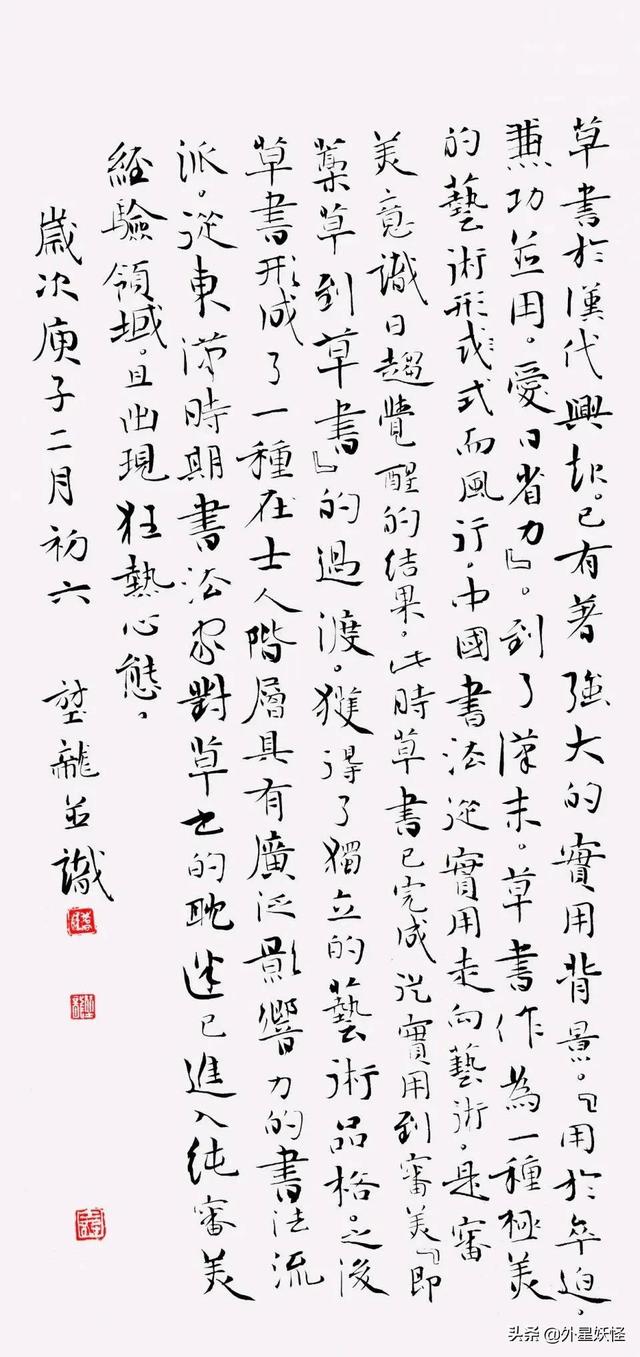 草書於漢代興起。已有著強大的實用背景。『用於卒迫，
兼功並用。愛日省力』。到了漢末。草書作為一種極美
的藝術形式式而風行，中國書法從實用走向藝術，是審
美意識日趨覺醒的結果，此時草書已完成從實用到審美『即
藁草到草書』的過渡。獲得了獨立的藝術品格。之後
草書形成了一種在士人階層具有廣泛影響力的書法流
派。從東漢時期書法家對草書的耽迷已進入純審美
經驗領域。且出現狂熱心態，
歲次庚子二月初六 龍並識
头条 @外星妖怪